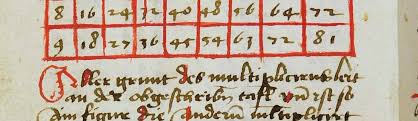 8 16 24 32 40 48 56 64 72
9 18 27 36 45 54 63 72 81
Aller grunt des multiplicirens leit
an der obgeschribn tafl vnd ist so
Am figure die andern multiplicirt